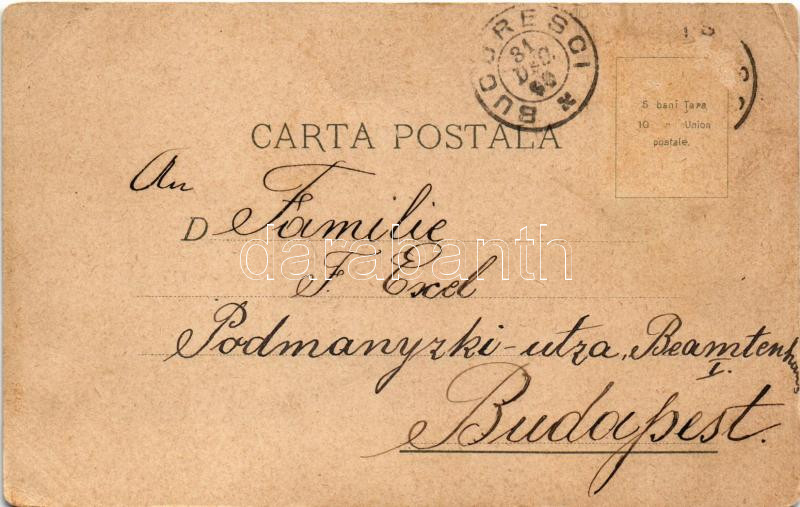 BUCURESCI
31
DEC.
CARTA POSTALA
5 bani Țara
10 Union
postale.
An
D Familie
F. Exel
Podmanyzki-utza, Beamtenhaus
I.
Budapest.
darabanth